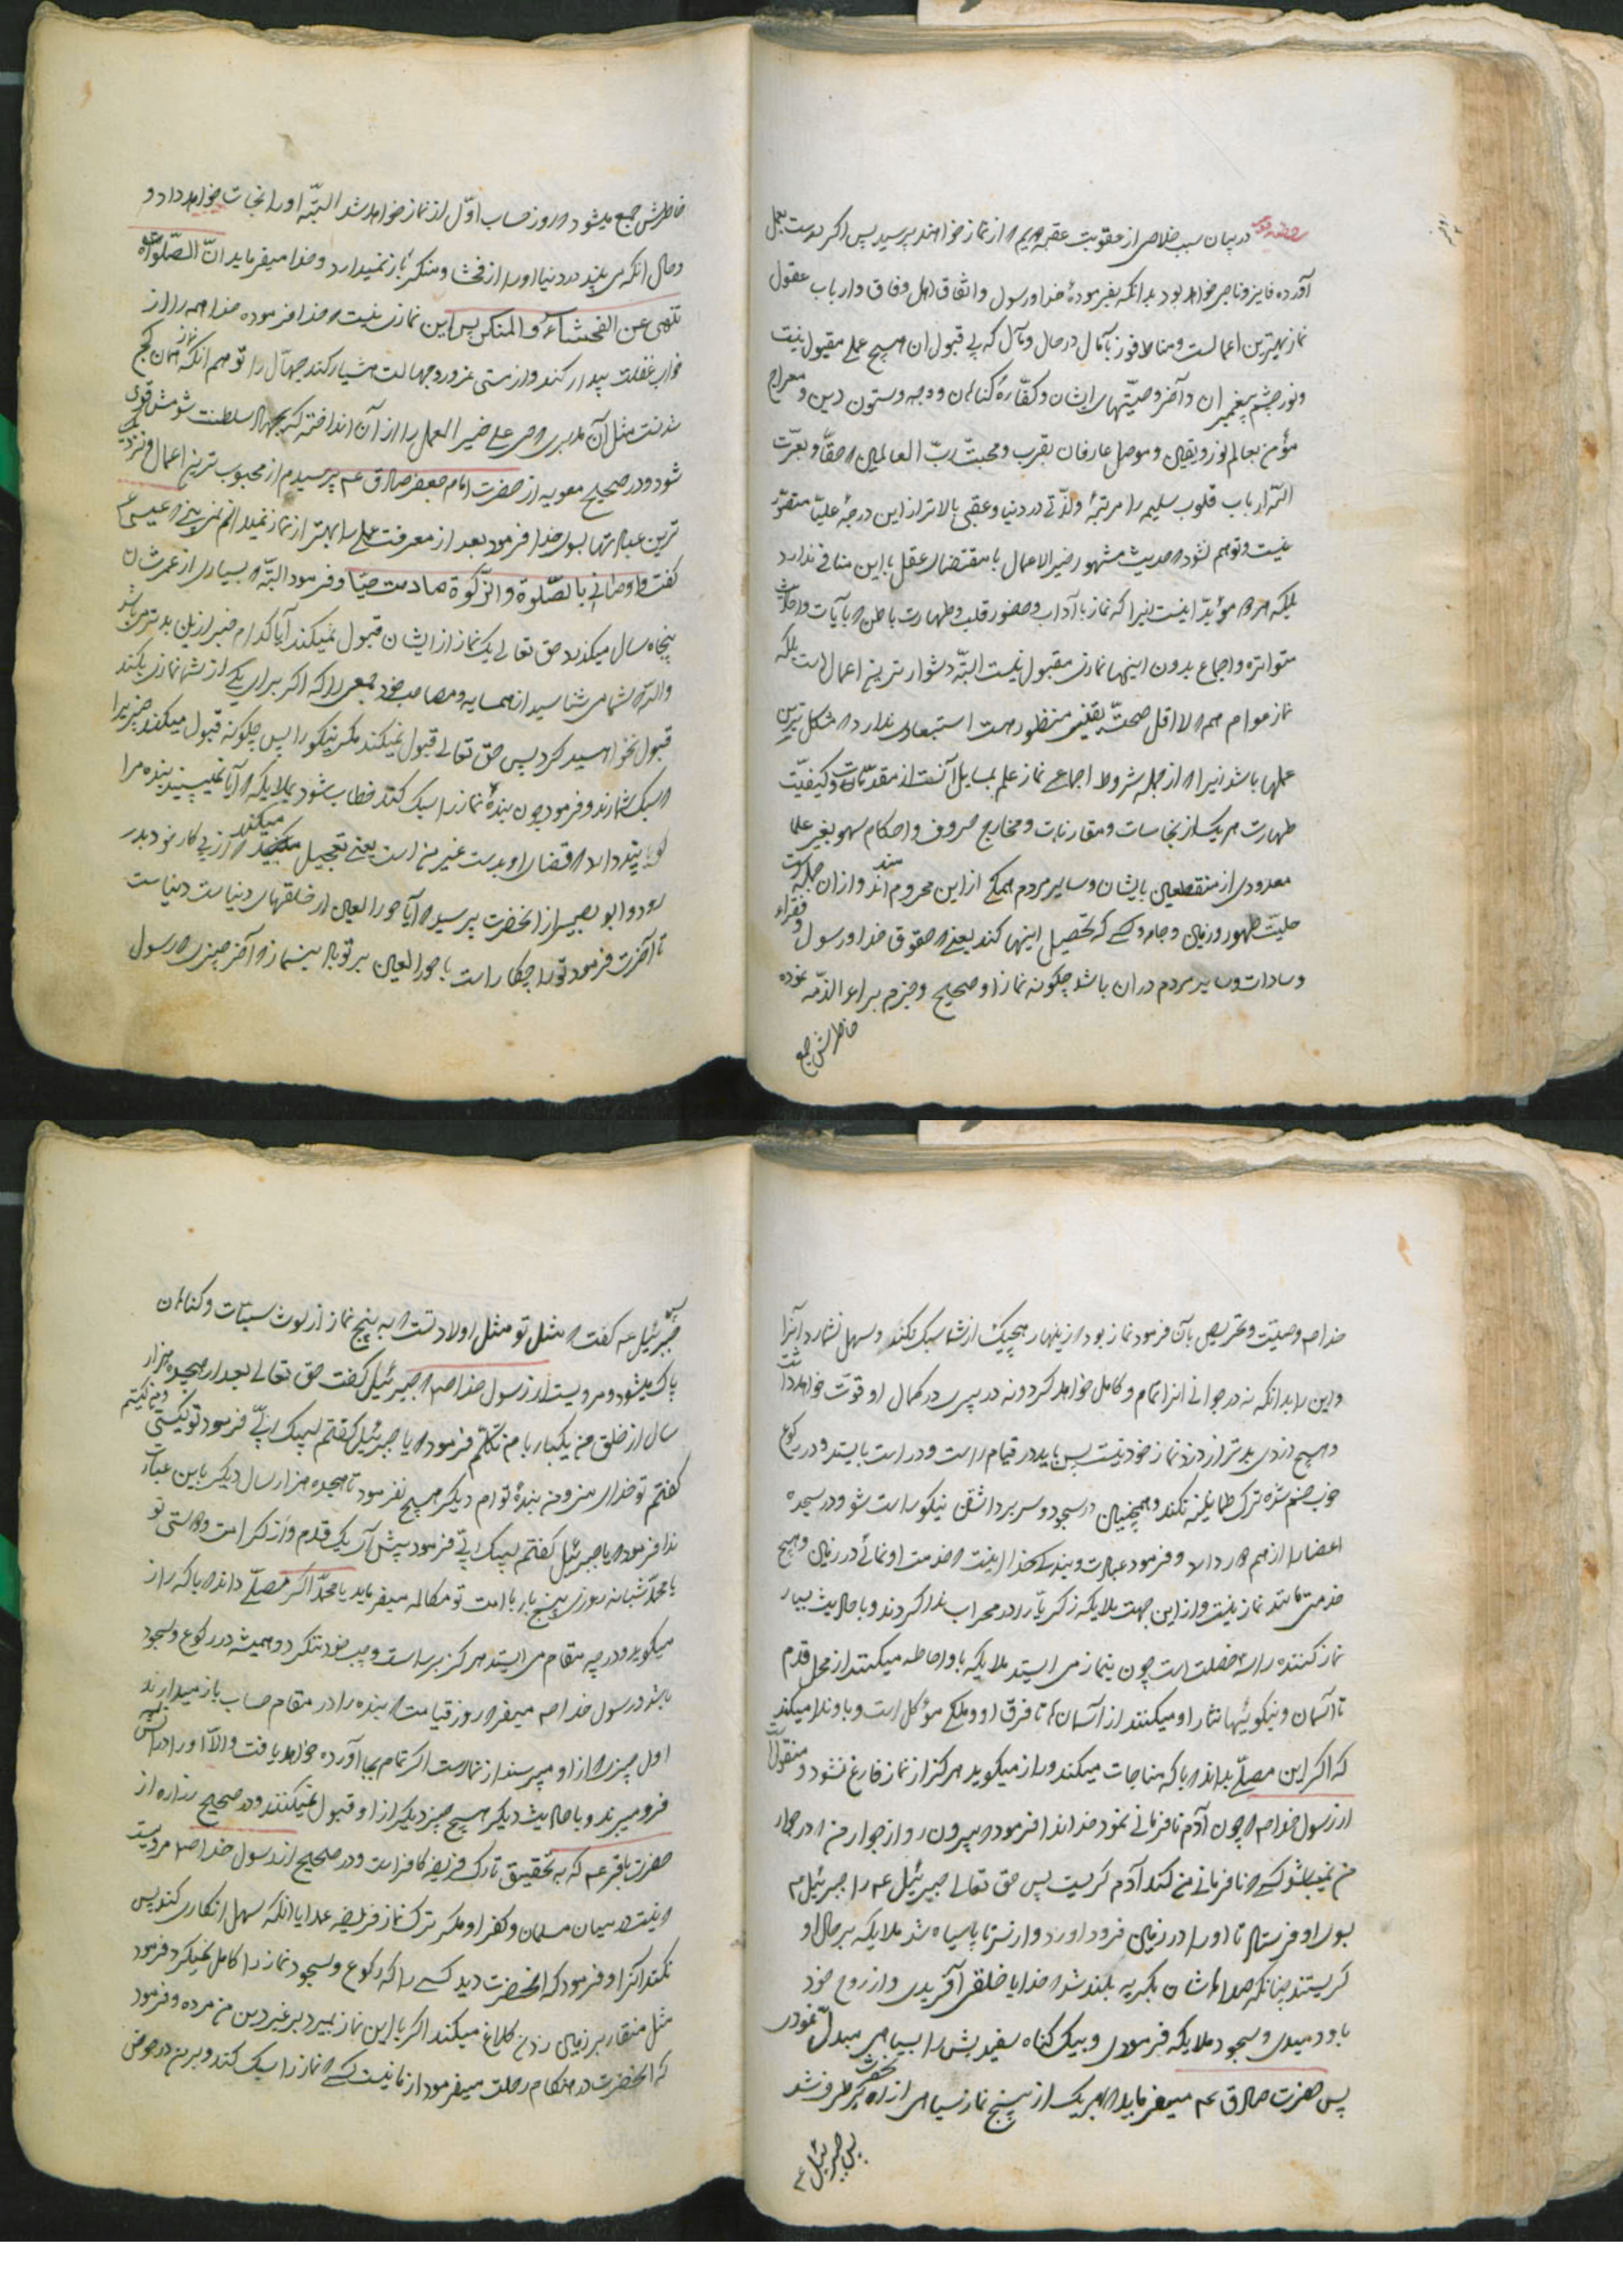 در بیان سبب خلاصی از عقوبت عقبه از نماز خواهند پرسید پس اگر درست بعمل
آورده فایز و ناجی خواهد بود بدانکه بفرمودهٔ خدا و رسول و اتفاق اهل وفاق و ارباب عقول
نماز بهترین اعمالست و مناط فوز بآمال در حال و مآل که بی قبول ان هیچ عملی مقبول نیست
و نور چشم پیغمبران و آخر وصیّتهای ایشان و کفّارهٔ گناهان و وجه و ستون دین و معراج
مؤمن بعالم نور و یقین و موصل عارفان بقرب و محبّت ربّ العالمین حقّا و بعزّت
اللّه ارباب قلوب سلیمه را مرتبهٔ ولذّتی در دنیا و عقبی بالاتر از این درجهٔ علیا متصوّر
نیست و توهم نشود حدیث مشهور خیر الاعمال با مقتضای عقل با این منافی ندارد
بلکه مؤیّد اینست زیرا که نماز با آداب و حضور قلب و طهارت باطن بآیات و احادیث
متواتره و اجماع بدون اینها نمازی مقبول نیست البتّه دشوار ترین اعمال است بلکه
نماز عوام هم اقل صحّت یقینی منظور است استبعادی ندارد مشکل ترین
عملها باشد زیرا از جمله شروط اجماعی نماز علم بمسایل آنست از مقدّمات و کیفیّت
طهارت هر یک از نجاسات و مقارنات و مخارج حروف و احکام سهو بغیر علما
معدودی از منقطعین بایشان و سایر مردم همگی از این محرومند و از ان جمله است
حلیّت طهور و زمین و جامه و کسی که تحصیل اینها کند یعنی حقوق خدا و رسول و فقراء
و سادات و سایر مردم در ان باشد چگونه نماز او صحیح و جزم براء الذمّه نموده
خاطرش جمع
خاطرش جمع میشود روز حساب اوّل از نماز خواهد شد البتّه او را نجات خواهد داد و
و حال انکه می بیند در دنیا او را از فحشا و منکر باز نمیدارد و خدا میفرماید انّ الصّلواة
تنهی عن الفحشاء و المنکر پس این نمازی نیست خدا فرموده خدا همه را از
خواب غفلت بیدار کند و از مستی غرور و جهالت هشیار کند جهّال را توهم انکه نماز همان کج
شود و در صحیح معویه از حضرت امام جعفر صادق عم پرسیدم از محبوب ترین اعمال و نزدیک
ترین عبادتها بسوی خدا فرمود بعد از معرفت عملی را بهتر از نماز نمیدانم نمی بینی عیسی ع
گفت و اوصانی بالصّلوة و الزّکوة مادمت حیّا و فرمود البتّه بسیاری از عمرشان
پنجاه سال میگذرد حق تعالی یک نماز از ایشان قبول نمیکند آیا کدام خبر ازین بدتر می باشد
واللّه شما می شناسید از همسایه و مصاحب خود جمعی را که اگر برای یکی از شما نمازی بکند
قبول نخواهید کرد پس حق تعالی قبول نمیکند مگر نیکو را پس چگونه قبول میکند چیزیرا
سبک شمارند و فرمود چون بندهٔ نماز را سبک کند خطاب شود بملایکه آیا نمی بینید بنده مرا
گویا پندارد قضای او بدست غیر من است یعنی تعجیل میکند از پی کار خود بدر
رود و ابو بصیر از انحضرت پرسید آیا حورالعین از خلقهای دنیاست
تا آخرت فرمود تو را چکار است با حورالعین بر تو باد بنماز آخر چیزی رسول
خدا صم وصیّت و تحریص بآن فرمود نماز بود زینهار هیچیک از شما سبک نکند و سهل نشمارد آنرا
و این را بدانکه نه در جوانی انرا تمام و کامل خواهد کرد و نه در پیری در کمال او قوّت خواهد داشت
و هیچ دزدی بدتر از دزد نماز خود نیست پس باید در قیام راست و درست بایستد و در رکوع
خوب خم شده ترک طمانینه نکند و همچنین در سجود و سر برداشتن نیکو راست شود و در سجده
اعضا را از هم وا دارد و فرمود عبادت و بندگی خدا اینست خدمت او نمائی در زمین و هیچ
خدمتی مانند نماز نیست و از این جهت ملایکه زکریّا را در محراب ندا کردند و باحادیث بسیار
نماز کننده را سه خصلت است چون بنماز می ایستد ملایکه باو احاطه میکنند از محل قدم
تا آسمان و نیکوئیها نثار او میکنند از آسمان تا فرق او و ملکی مؤکل است و باو ندا میکند
که اگر این مصلّی بداند با که مناجات میکند و راز میگوید هرگز از نماز فارغ نشود و منقولست
از رسول خدا صم چون آدم نافرمانی نمود خدا ندا فرمود بیرون رو از جوار من در جوار
من نمیباشد کسی نافرمانی من کند آدم گریست پس حق تعالی جبرئیل عم را
بسوی او فرستاد تا او را در زمین فرود اورد و از سر تا پا سیاه شد ملایکه بر حال او
گریستند چنانکه صداهاشان بگریه بلند شد خدایا خلقی آفریدی و از روح خود
باو دمیدی و بسجود ملایکه فرمودی و بیک گناه سفیدیش را بسیاهی مبدّل نمودی
پس حضرت صادق عم میفرماید بهر یک از پنج نماز سیاهی از او برطرف شد
پس جبرئیل ع
جبرئیل عم گفت مثل تو مثل اولاد تست به پنج نماز از لوث سیّئات و گناهان
پاک میشود و مرویست از رسول خدا صم جبرئیل گفت حق تعالی بعد از هیجده هزار
سال از خلق من یکبار با من تکلّم فرمود یا جبرئیل گفتم لبیک ربّی فرمود تو کیستی و من کیستم
گفتم تو خدای منی و من بندهٔ توام دیگر هیچ نفرمود تا هیجده هزار سال دیگر باین عبارت
ندا فرمود یا جبرئیل گفتم لبیک ربّی فرمود پیش آی یک قدم و از کرامت و دوستی تو
یا محمّد شبانه روزی پنج بار با امت تو مکالمه میفرماید یا محمّد اگر مصلّی داند با که راز
میگوید و در چه مقام می ایستد هرگز براست و چپ خود ننگرد و همیشه در رکوع و سجود
باشد و رسول خدا صم میفرمود روز قیامت بنده را در مقام حساب باز میدارند
اول چیزی از او میپرسند از نماز است اگر تمام بجا آورده خواهد یافت والّا او را در آتش
فرو میبرند و باحادیث دیگر هیچ چیز دیگر از او قبول نمیکنند و در صحیح زراره از
حضرت باقر عم که به تحقیق تارک فریضه کافر است و در صحیح از رسول خدا صم مرویست
نیست در میان مسلمان و کفر او مگر ترک نماز فریضه عمدا یا انکه سهل انگاری کند پس
نکند انرا و فرمود که انحضرت دید کسی را که رکوع و سجود نماز را کامل نمیکرد فرمود
مثل منقار بر زمین زدن کلاغ میکند اگر با این نماز بمیرد بر غیر دین من مرده و فرمود
که انحضرت در هنگام رحلت میفرمود از ما نیست کسی نماز را سبک کند و بر من در حوض